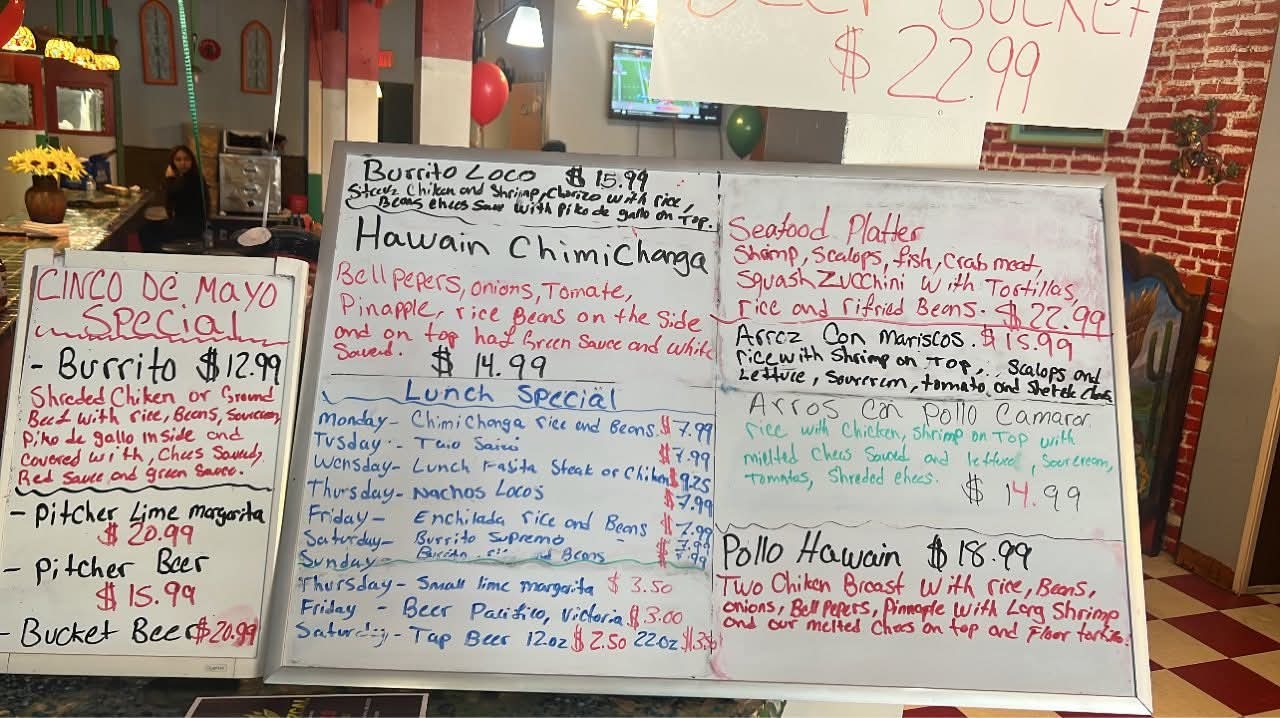 BUCKET
$22.99
CINCO DE MAYO
SPECIAL
- Burrito $12.99
Shreded Chiken or Ground
Beef with rice, Beans, sourcrem,
Piko de gallo inside and
covered with, Chees Sauced,
Red sauce and green sauce.
- Pitcher Lime margarita
$20.99
- Pitcher Beer
$15.99
- Bucket Beer $20.99
Burrito Loco $15.99
Chiken and Shriimp, Chorizo with rice,
Beans chees Sauce with Piko de gallo on Top.
Hawain ChimiChanga
Bell pepers, onions, Tomate,
Pinapple, rice Beans on the Side
and on top half Green Sauce and white
Saued.
$14.99
Lunch Special
Monday- Chimichanga rice and Beans $7.99
Tusday-
$7.99
Wensday- Lunch Fasita Steak or Chiken $9.25
Thursday- Nachos Locos $7.99
Friday- Enchilada rice and Beans $7.99
Saturday- Burrito Supremo $7.99
Sunday- Beans $7.99
Thursday- Small lime margarita $3.50
Friday - Beer Pacifico, Victoria $3.00
Saturday- Tap Beer 12oz $2.50 22oz
Seafood Platter
Shrimp, Scalops, fish, Crab meat,
Squash Zucchini with Tortillas,
rice and rifried Beans. $22.99
Arroz Con Mariscos. $15.99
rice with Shrimp on Top,.. Scalops and
Lettuce, Sourcrem, tomato, and
Arros con pollo Camaron
rice with Chicken, shrimp on Top with
mielted Chees Sauced and lettuce, Sourcream,
Tomatos, Shreded chees.
$14.99
Pollo Hawain $18.99
Two Chiken Breast with rice, Beans,
onions, Bell Pepers, Pinnaple with Larg Shrimp
and our melted Chees on top and Floor tortillas.